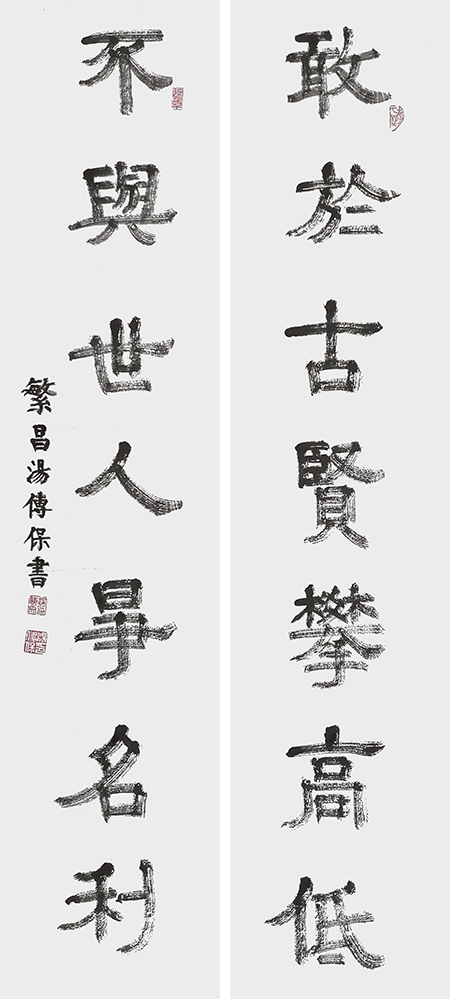 敢於古賢攀高低
不與世人爭名利
繁昌湯傳保書